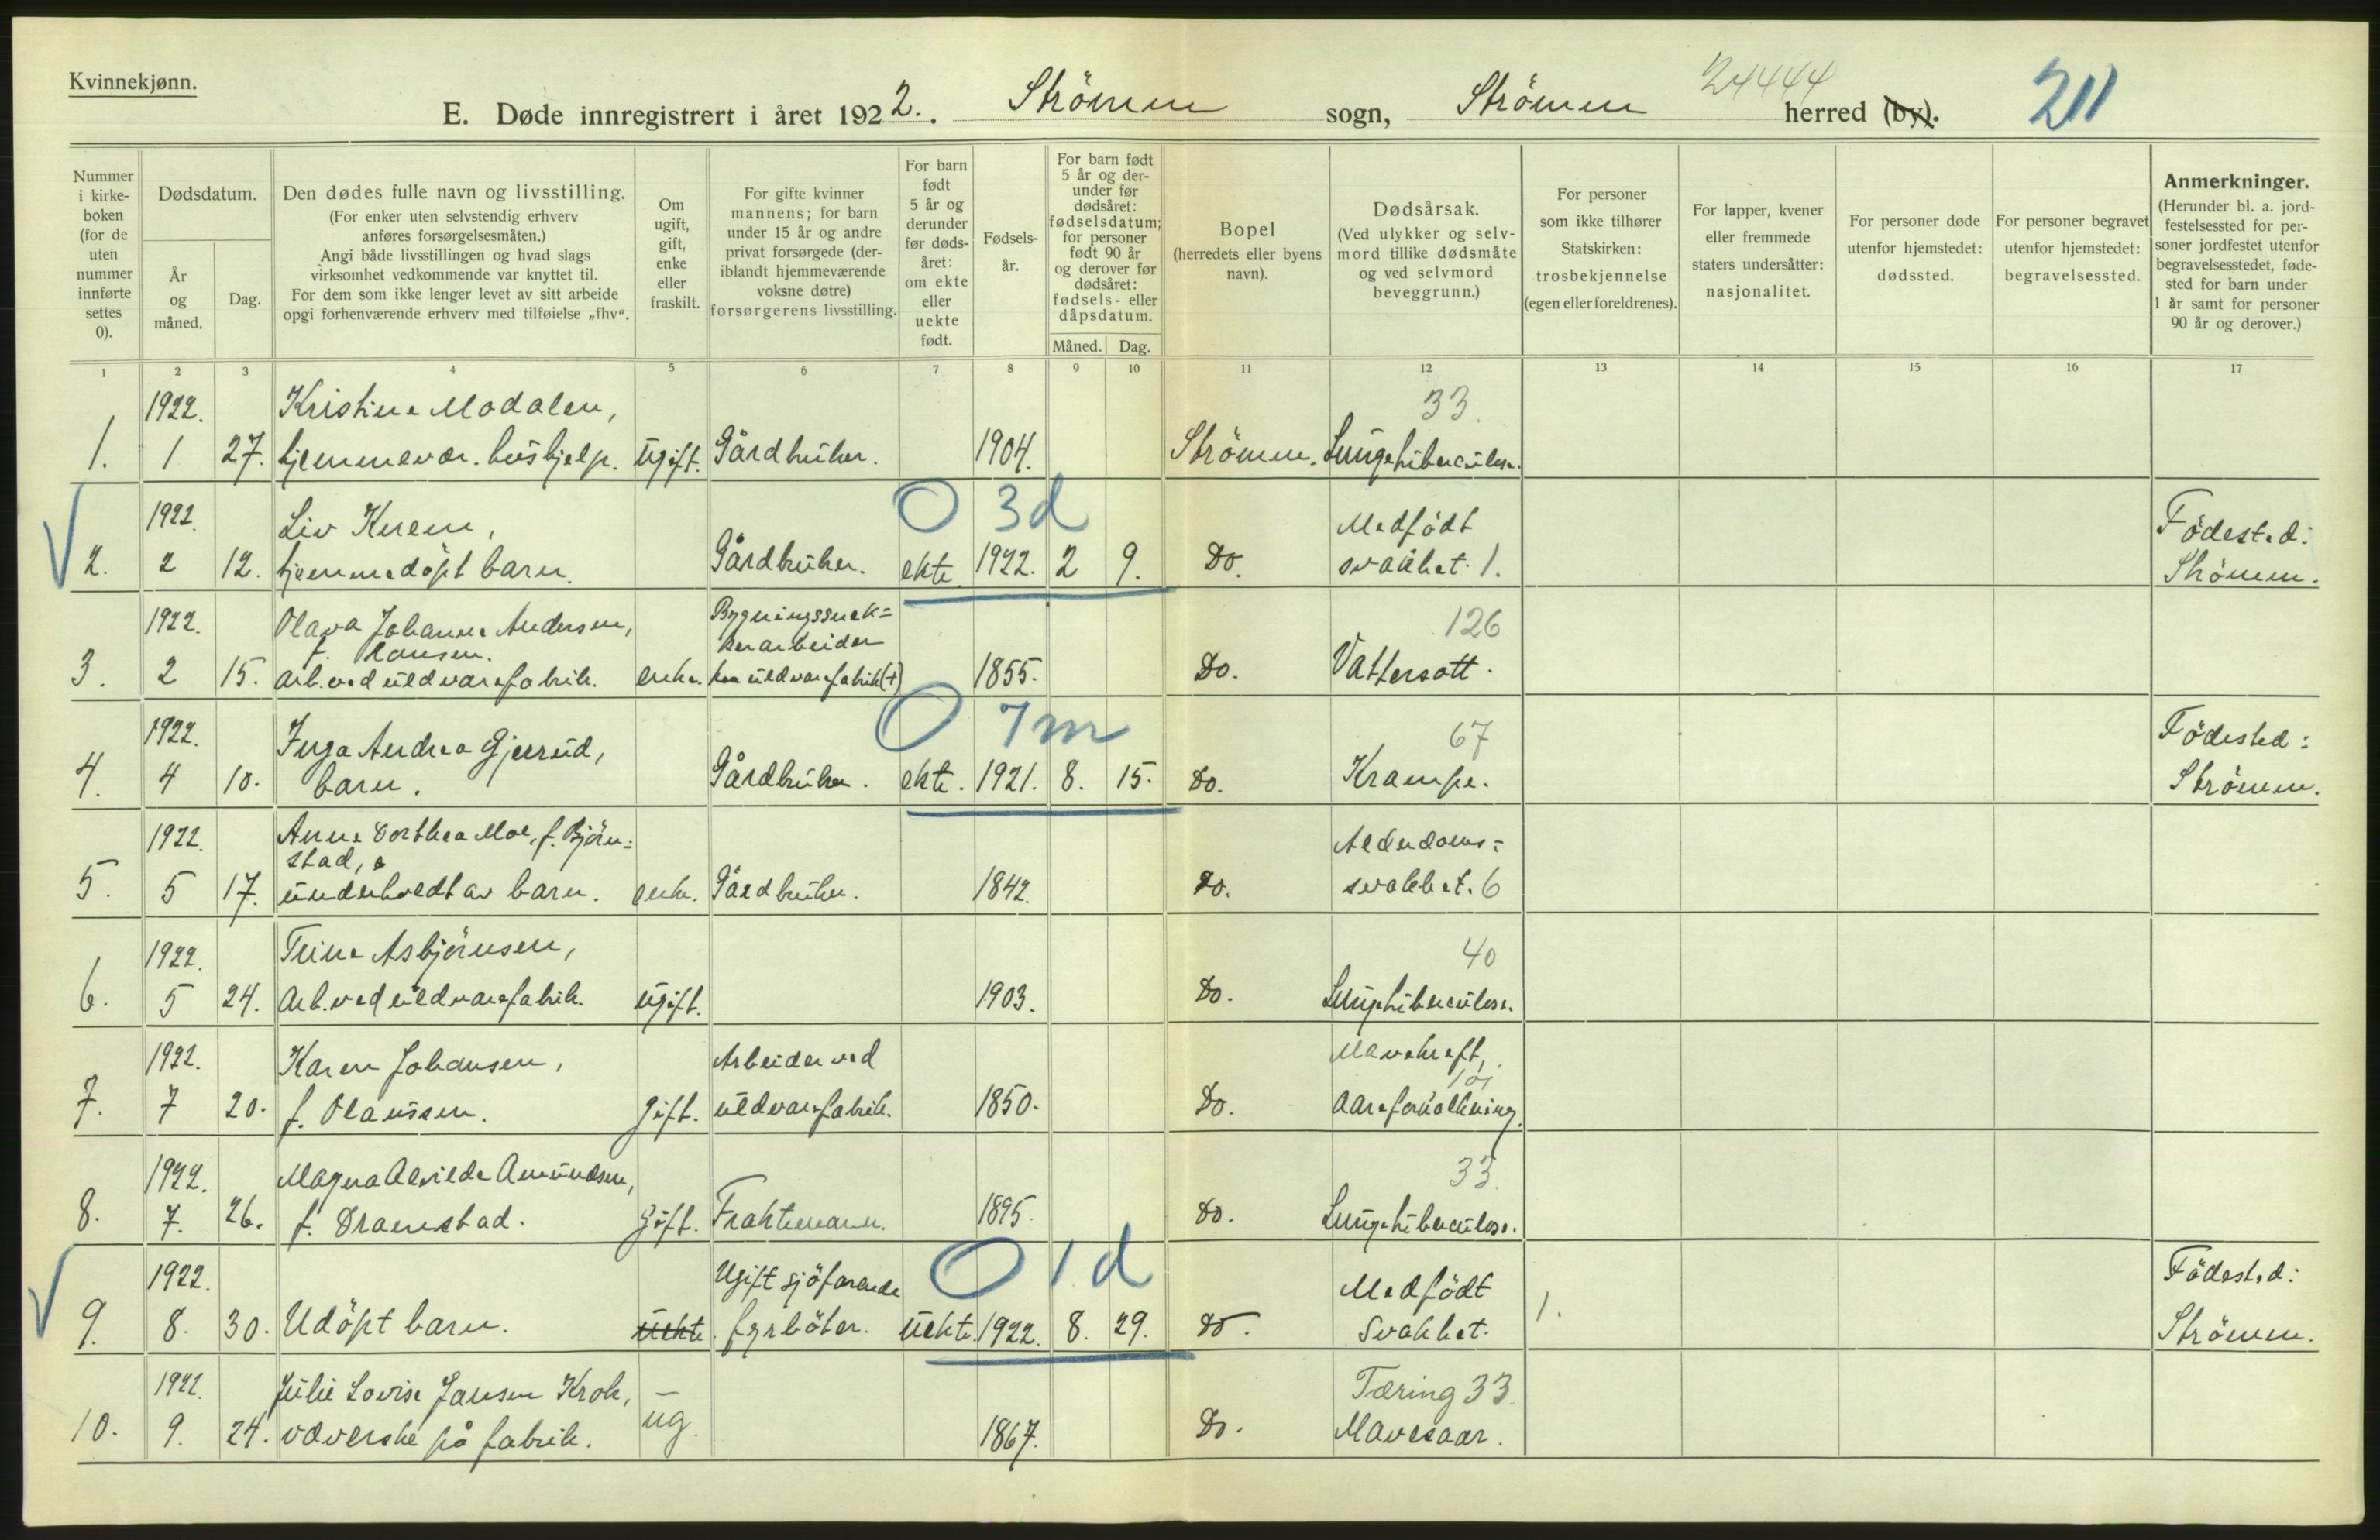 Kvinnekjønn.
24444
211
E. Døde innregistrert i året 1922. Strömm sogn, Strömm herred (by).
Nummer i kirke-boken (for de uten nummer innførte settes 0).
Dødsdatum.
År og måned.
Dag.
Den dødes fulle navn og livsstilling.
(For enker uten selvstendig erhverv
anføres forsørgelsesmåten.)
Angi både livsstillingen og hvad slags
virksomhet vedkommende var knyttet til.
For dem som ikke lenger levet av sitt arbeide
opgi forhenværende erhverv med tilføielse „fhv“.
Om ugift, gift, enke eller fraskilt.
For gifte kvinner
mannens; for barn
under 15 år og andre
privat forsørgede (der-
iblandt hjemmeværende
voksne døtre)
forsørgerens livsstilling.
For barn
født
5 år og
derunder
før døds-
året:
om ekte
eller
uekte
født.
Fødsels-
år.
For barn født
5 år og der-
under før
dødsåret:
fødselsdatum;
for personer
født 90 år
og derover før
dødsåret:
fødsels- eller
dåpsdatum.
Måned. Dag.
Bopel
(herredets eller byens
navn).
Dødsårsak.
(Ved ulykker og selv-
mord tillike dødsmåte
og ved selvmord
beveggrunn.)
For personer
som ikke tilhører
Statskirken:
trosbekjennelse
(egen eller foreldrenes).
For lapper, kvener
eller fremmede
staters undersåtter:
nasjonalitet.
For personer døde
utenfor hjemstedet:
dødssted.
For personer begravet
utenfor hjemstedet:
begravelsessted.
Anmerkninger.
(Herunder bl. a. jord-
festelsessted for per-
soner jordfestet utenfor
begravelsesstedet, føde-
sted for barn under
1 år samt for personer
90 år og derover.)
1 2 3 4 5 6 7 8 9 10 11 12 13 14 15 16 17
1922. Kristine Modalen, 33.
1. 1 27. hjemmevær. hushjelp. Ugift. Gårdbruker. 1904. Strömm. Lungetuberculose.
1922. Liv Knem, O 3d Medfödt Födested:
2. 2 12. hjemmedöpt barn. Gårdbruker. ekte 1922. 2 9. Do. svakhet. 1. Strömm.
1922. Olava Johanne Andersen, Bygningssnek= 126
f. Hansen. kerarbeider
3. 2 15. arb. ved uldvarefabrik. enke. uldvarefabrik (+) 1855. Do. Vattersott.
1922. Inga Andrea Gjerrud, O 7m 67 Födested:
4. 4 10. barn. Gårdbruker. ekte. 1921. 8. 15. Do. Krampe. Strömm.
1922. Anne Dorthea Moe, f. Björn= Alderdoms=
stad,
5. 5 17. underholdt av barn. enke. Gårdbruker. 1842. Do. svakhet. 6
1922. Trine Asbjörnsen, 40
6. 5 24. Arb. ved uldvarefabrik. ugift. 1903. Do. Lungetuberculose.
1922. Karen Johansen, Arbeider ved Mavekreft,
7. 7 20. f. Olaussen. gift. uldvarefabrik. 1850. Do. Aareforkalkning.
1922. Magna Alvilde Amundsen, 33.
8. 7. 26. f. Dramstad. gift. Fraktemann. 1895. Do. Lungetuberculose.
1922. Ugift sjöfarende O 1 d Medfödt Födested:
9. 8. 30. Udöpt barn. uekte. fyrböter. uekte. 1922. 8. 29. Do. Svakhet. 1. Strömm.
1922. Julie Lovise Jansen Krok, — Tæring 33.
10. 9. 24. væverske på fabrik. ug. 1867. Do. Mavesaar.